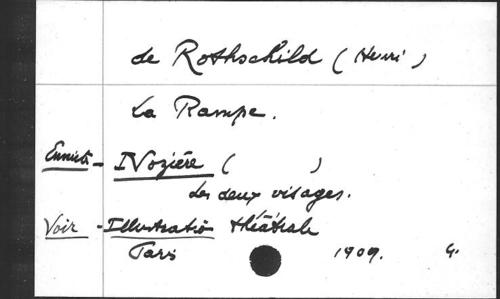 de Rothschild (Henri)
La Rampe.
Ennisti - Nozière ( )
Les deux visages.
Voir - Illustration théâtrale
Paris 1909. 4.